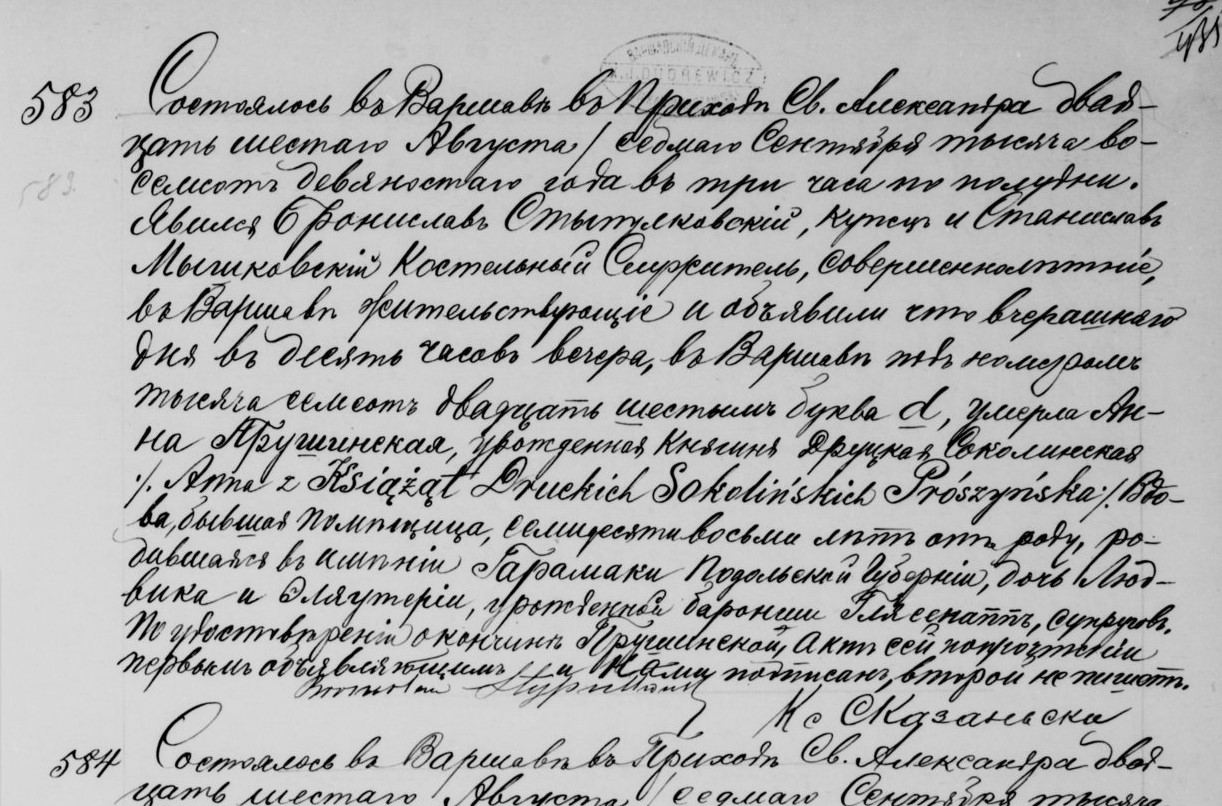 583 Состоялось въ Варшавѣ въ Приходѣ Св. Александра двад-
цать шестаго Августа / седмаго Сентября тысяча во-
семсотъ девяностаго года въ три часа по полудни.
583.
Явился Брониславъ Стыпулковскій, купецъ и Станиславъ
Мышковскій Костельный Служитель, совершеннолѣтніе,
въ Варшавѣ жительствующіе и объявили что вчерашняго
дня въ десять часовъ вечера, въ Варшавѣ подъ номеромъ
тысяча семсотъ двадцать шестымъ буква d, умерла Ан-
на Прушинская, урожденная Княгиня Друцкая Соколинская
./. Anna z Książąt Druckich Sokolińskich Prószyńska ./. Вдо-
ва, бывшая помѣщица, семидесяти восьми лѣтъ отъ роду, ро-
дившаяся въ имѣніи Гарамаки Подольской Губерніи, дочь Люд-
вика и Элеутеріи, урожденной баронши Глясенаппъ, супруговъ.
По удостовѣреніи окончинѣ Прушинской, Актъ сей по прочтеніи
первымъ объявляющимъ и Нами подписанъ, второй не пишетъ.
Кс Сказаньски
584 Состоялось въ Варшавѣ въ Приходѣ Св. Александра двад-
цать шестаго Августа / седмаго Сентября тысяча